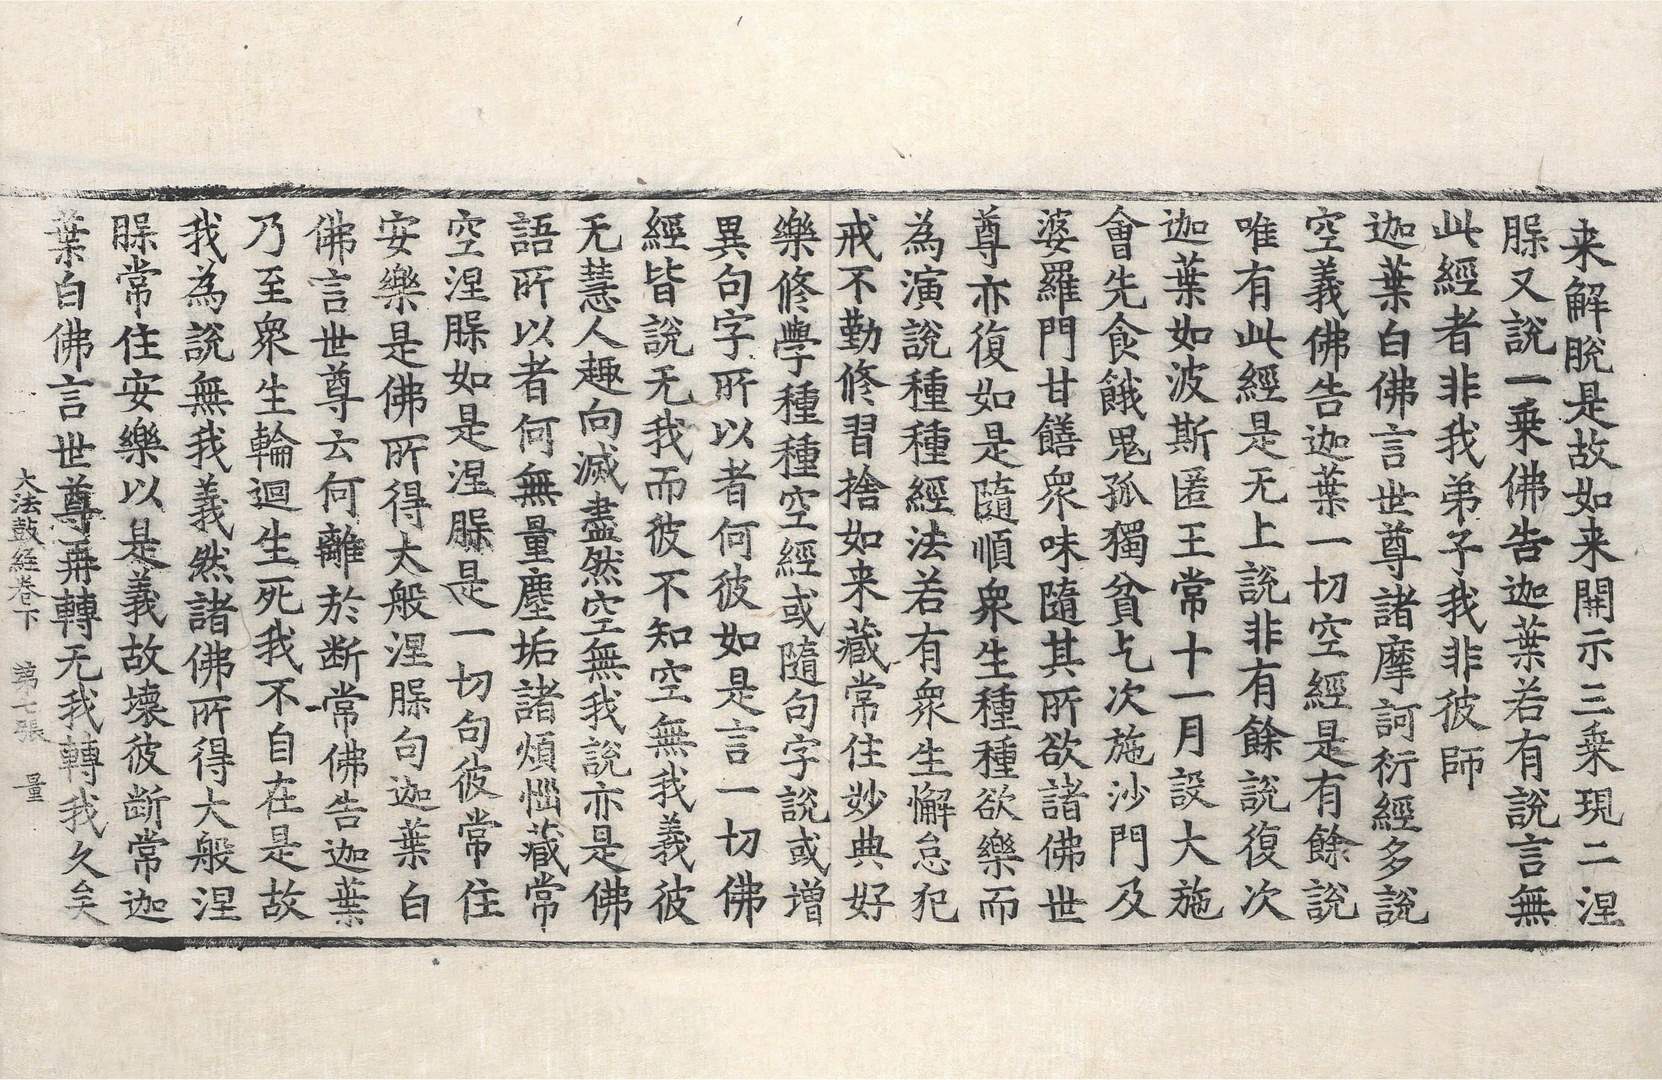 来解脫是故如来開示三乗現二涅
𦞅又說一乗佛告迦葉若有說言無
此經者非我弟子我非彼師
迦葉白佛言世尊諸摩訶衍經多說
空義佛告迦葉一切空經是有餘說
唯有此經是无上說非有餘說復次
迦葉如波斯匿王常十一月設大施
會先食餓鬼孤獨貧乞次施沙門及
婆羅門甘饍衆味隨其所欲諸佛世
尊亦復如是隨順衆生種種欲樂而
為演說種種經法若有衆生懈怠犯
戒不勤修習捨如来藏常住妙典好
樂修學種種空經或隨句字說或增
異句字所以者何彼如是言一切佛
經皆說无我而彼不知空無我義彼
无慧人趣向滅盡然空無我說亦是佛
語所以者何無量塵垢諸煩惱藏常
空涅𦞅如是涅𦞅是一切句彼常住
安樂是佛所得大般涅𦞅句迦葉白
佛言世尊云何離於断常佛告迦葉
乃至衆生輪迴生死我不自在是故
我為說無我義然諸佛所得大般涅
𦞅常住安樂以是義故壞彼断常迦
葉白佛言世尊再轉无我轉我久矣
大法鼓經卷下　第七張　量